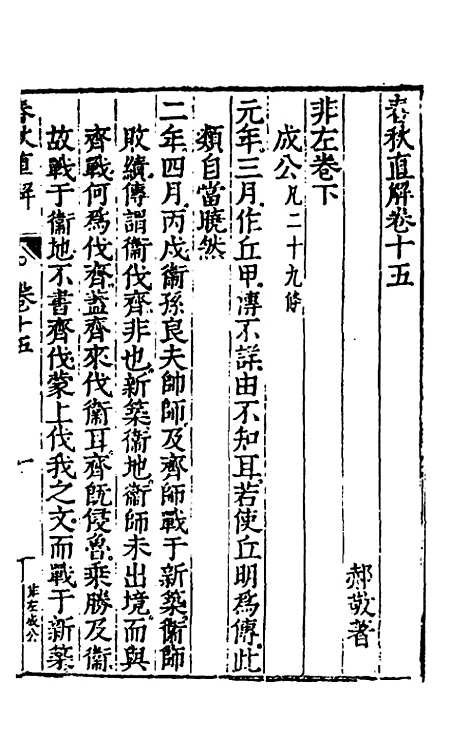 春秋直解卷十五
郝敬著
非左卷下
成公凡二十九條
元年三月作丘甲傳不詳由不知耳若使丘明爲傳此
類自當曉然
二年四月丙戌衞孫良夫帥師及齊師戰于新築衞師
敗績傳謂衞伐齊非也新築衞地衞師未出境而與
齊戰何爲伐齊蓋齊來伐衞耳齊旣侵魯乘勝及衞
故戰于衞地不書齊伐蒙上伐我之文而戰于新築
春秋直解 卷十五 一 非左成公